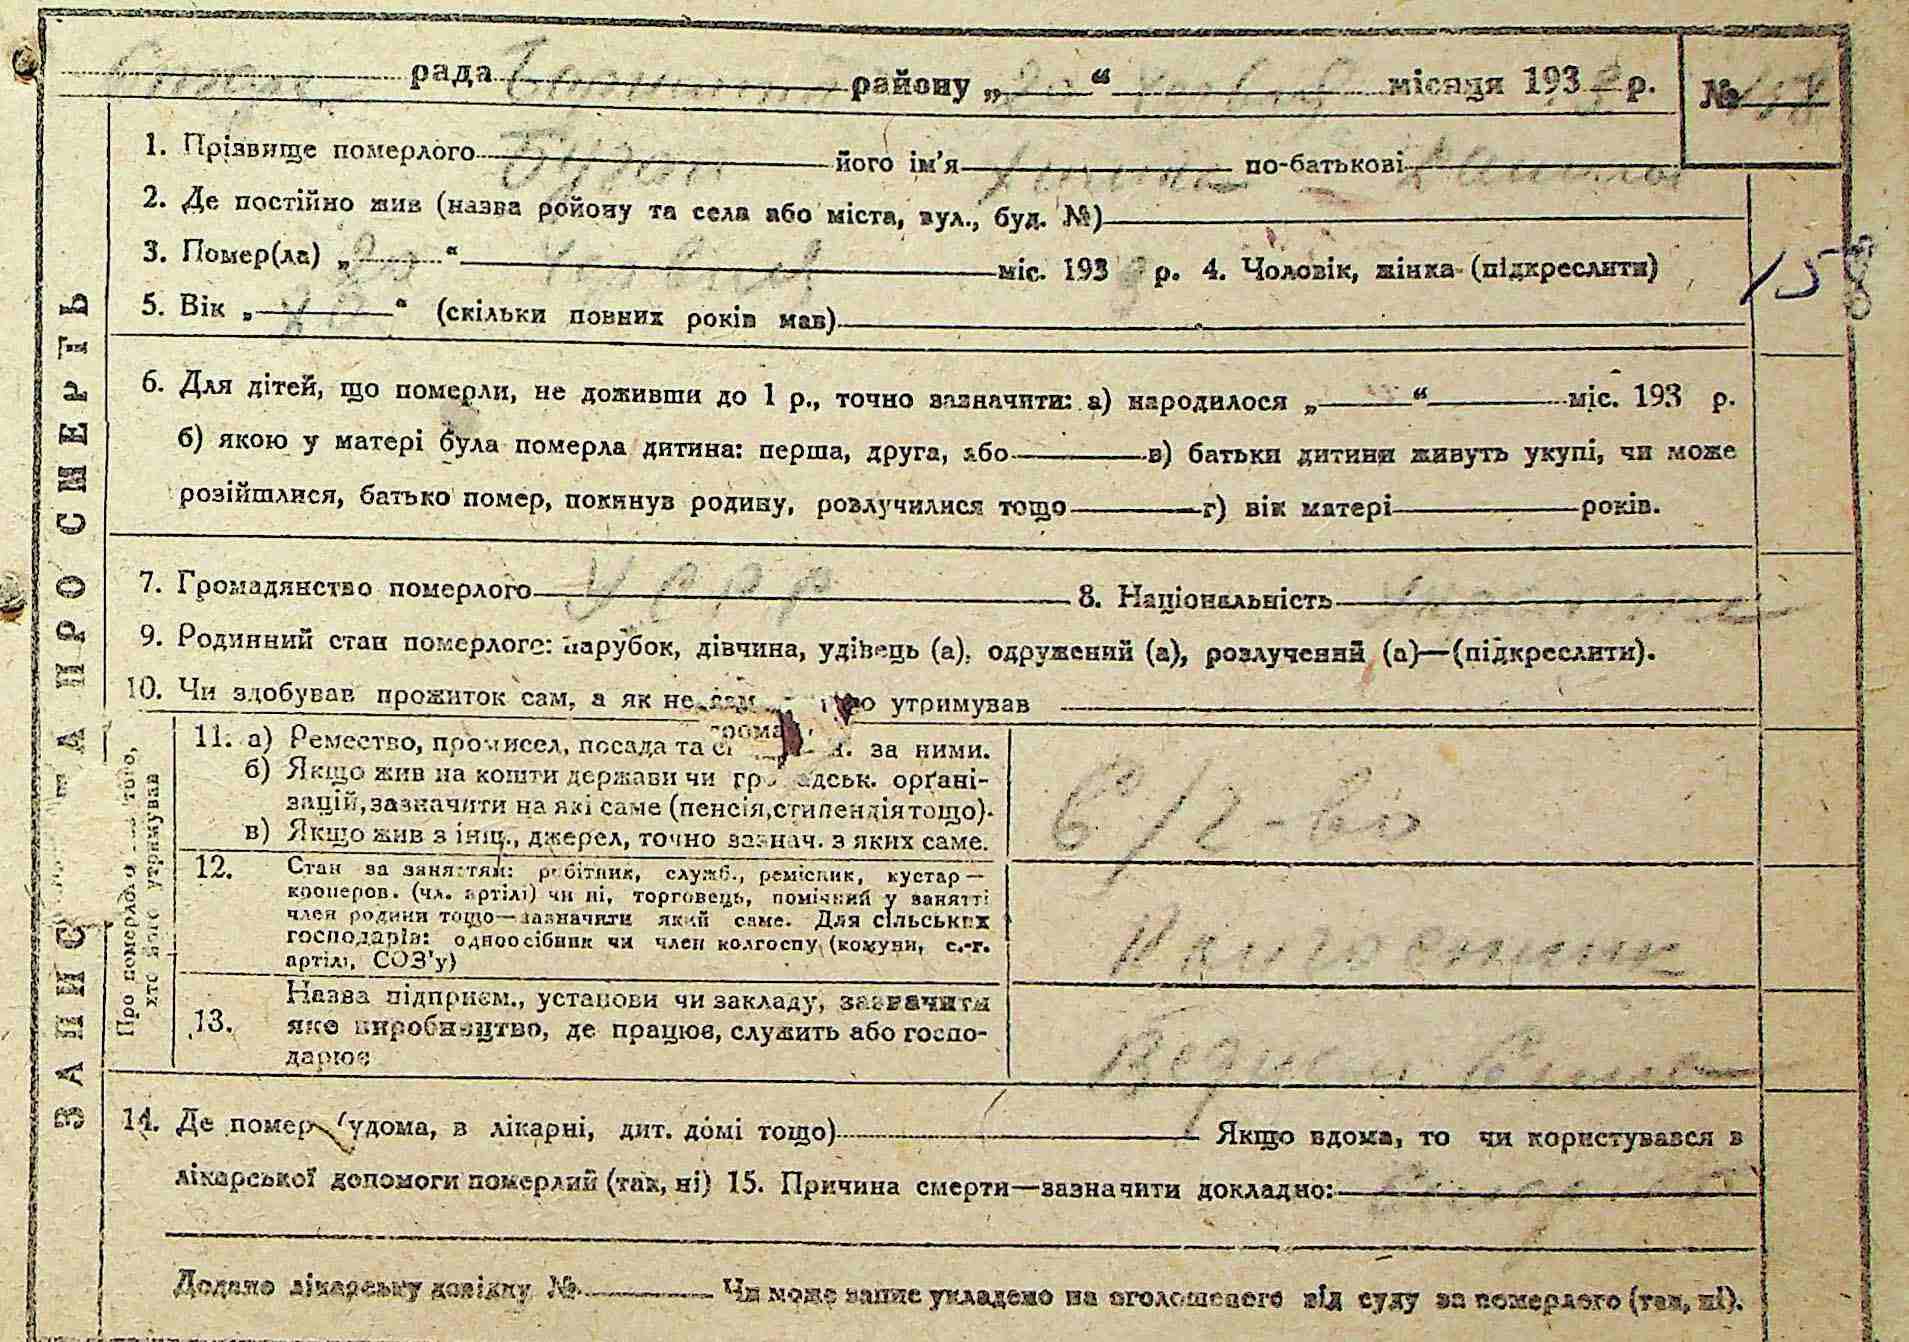 рада района „20“ червня місяця 193 р. № 158
1. Прізвище померлого його ім'я по-батькові
2. Де постійно жив (назва ройону та села або міста, вул., буд. №)
3. Помер(ла) „20“ червня міс. 193 р. 4. Чоловік, жінка (підкреслити)
158
5. Вік „ “ (скільки повних років мав)
6. Для дітей, що померли, не доживши до 1 р., точно зазначити: а) народилося „ “ міс. 193 р.
б) якою у матері була померла дитина: перша, друга, або в) батьки дитини живуть укупі, чи може
розійшлися, батько помер, покинув родину, розлучилися тощо г) вік матері років.
7. Громадянство померлого УСРР 8. Національність
9. Родинний стан померлого: парубок, дівчина, удівець (а), одружений (а), розлучений (а)—(підкреслити).
10. Чи здобував прожиток сам, а як не сам утримував
ЗАПИС ПРО СМЕРТЬ
Про померлого того,
хто його утримував
11. а) Ремество, промисел, посада та за ними.
б) Якщо жив на кошти держави чи громадськ. орґані-
зацій, зазначити на які саме (пенсія, стипендія тощо).
в) Якщо жив з інш., джерел, точно зазнач. з яких саме.
С/г-во
12. Стан за заняттям: робітник, служб., ремісник, кустар—
кооперов. (чл. артілі) чи ні, торговець, помічний у занятті
член родини тощо—зазначити який саме. Для сільських
господарів: одноосібник чи член колгоспу (комуни, с.-г.
артілі, СОЗ'у)
Колгоспник
13. Назва підприєм., установи чи закладу, зазначити
яке виробництво, де працює, служить або госпо-
дарює
14. Де помер (удома, в лікарні, дит. домі тощо) Якщо вдома, то чи користувався в
лікарської допомоги померлий (так, ні) 15. Причина смерти—зазначити докладно:
Додано лікарську довідку № Чи може запис укладено на оголошеного від суду за померлого (так, ні).